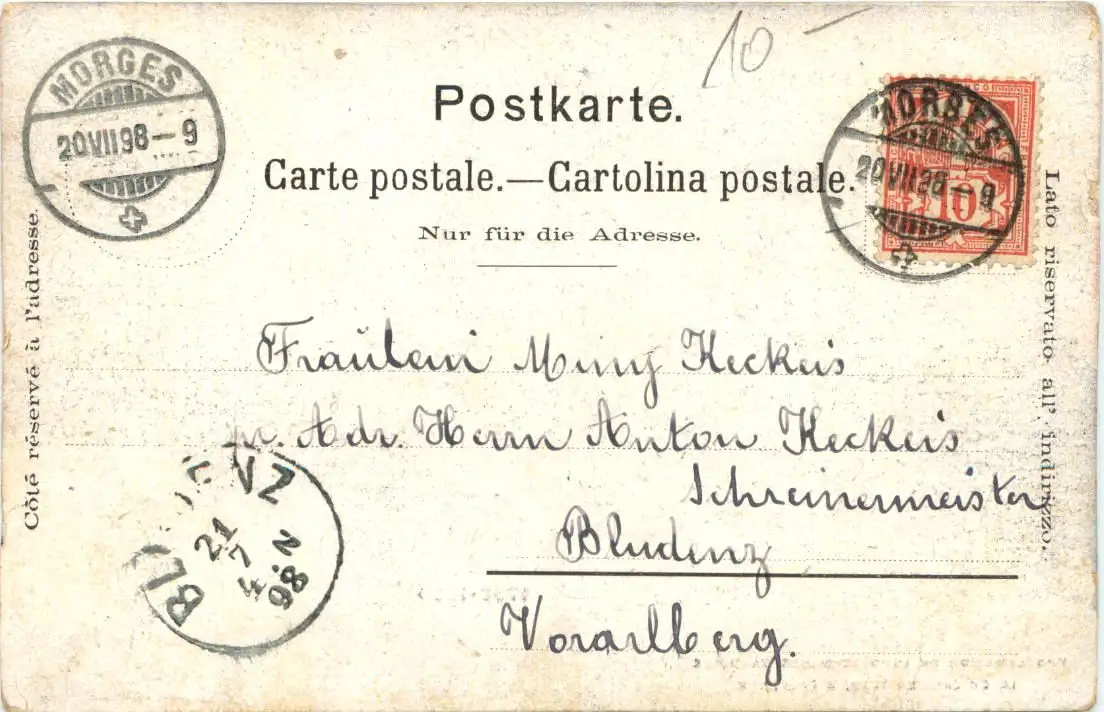 10 –
MORGES
20VII98–9
Postkarte.
Carte postale.—Cartolina postale.
Nur für die Adresse.
MORGES
20VII98–9
10
Côté réservé à l'adresse.
Lato riservato all' indirizzo.
Fräulein Miny Keckeis
pr. Adr. Herrn Anton Keckeis
Schreinermeister
Bludenz
Vorarlberg.
BLUDENZ
21
7
4 N
98